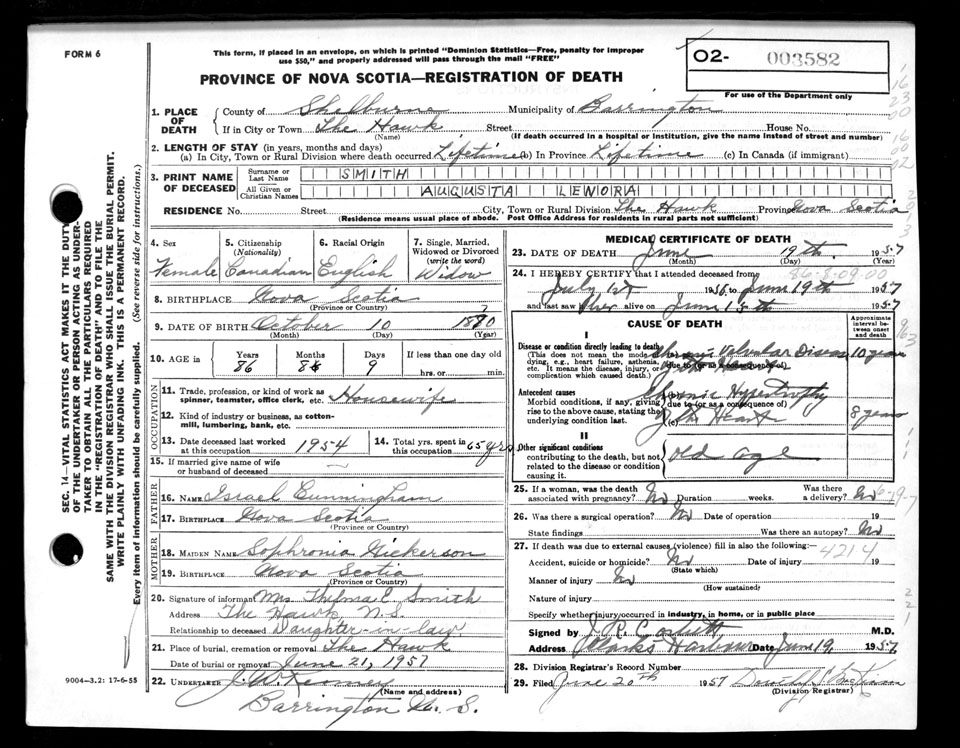 FORM 6
This form, if placed in an envelope, on which is printed "Dominion Statistics—Free, penalty for improper
use $50," and properly addressed will pass through the mail "FREE"
O2- 003582
For use of the Department only
PROVINCE OF NOVA SCOTIA—REGISTRATION OF DEATH
1. PLACE OF DEATH
County of Shelburne Municipality of Barrington
If in City or Town The Hawk Street House No.
(Name) (If death occurred in a hospital or institution, give the name instead of street and number)
2. LENGTH OF STAY (in years, months and days)
(a) In City, Town or Rural Division where death occurred Lifetime (b) In Province Lifetime (c) In Canada (if immigrant)
3. PRINT NAME OF DECEASED
Surname or Last Name SMITH
All Given or Christian Names AUGUSTA LENORA
RESIDENCE No. Street City, Town or Rural Division The Hawk Province Nova Scotia
(Residence means usual place of abode. Post Office Address for residents in rural parts not sufficient)
4. Sex
Female
5. Citizenship
(Nationality)
Canadian
6. Racial Origin
English
7. Single, Married, Widowed or Divorced
(write the word)
Widow
8. BIRTHPLACE Nova Scotia
(Province or Country)
9. DATE OF BIRTH October 10
(Month) (Day) (Year)
10. AGE in
Years Months Days If less than one day old
86 8 9 hrs. or min.
OCCUPATION
11. Trade, profession, or kind of work as spinner, teamster, office clerk, etc. Housewife
12. Kind of industry or business, as cotton-mill, lumbering, bank, etc.
13. Date deceased last worked at this occupation 1954
14. Total yrs. spent in this occupation 65 yrs
15. If married give name of wife or husband of deceased
FATHER
16. NAME Israel Cunningham
17. BIRTHPLACE Nova Scotia
(Province or Country)
MOTHER
18. MAIDEN NAME Sophronia Nickerson
19. BIRTHPLACE Nova Scotia
(Province or Country)
20. Signature of informant Mrs Thelma E. Smith
Address The Hawk, N.S.
Relationship to deceased Daughter-in-law
21. Place of burial, cremation or removal The Hawk
Date of burial or removal June 21, 1957
22. UNDERTAKER
(Name and address)
Barrington N. S.
9004-3.2: 17-6-55
SEC. 14—VITAL STATISTICS ACT MAKES IT THE DUTY
OF THE UNDERTAKER OR PERSON ACTING AS UNDER-
TAKER TO OBTAIN ALL THE PARTICULARS REQUIRED
IN THE "REGISTRATION OF DEATH" AND TO FILE THE
SAME WITH THE DIVISION REGISTRAR WHO SHALL ISSUE THE BURIAL PERMIT.
WRITE PLAINLY WITH UNFADING INK. THIS IS A PERMANENT RECORD.
Every item of information should be carefully supplied. (See reverse side for instructions.)
MEDICAL CERTIFICATE OF DEATH
23. DATE OF DEATH June 19th 1957
(Month) (Day) (Year)
86-8-09.00
24. I HEREBY CERTIFY that I attended deceased from
July 1st 1956 to June 19th 1957
and last saw her alive on June 1957
CAUSE OF DEATH
Approximate interval between onset and death
I
Disease or condition directly leading to death
(This does not mean the mode of dying, e.g., heart failure, asthenia, etc. It means the disease, injury, or complication which caused death.)
Chronic Valvular Disease
due to (or as a consequence of)
10 years
Antecedent causes
Morbid conditions, if any, giving rise to the above cause, stating the underlying condition last.
Chronic Hypertrophy
due to (or as a consequence of)
(c) of the Heart
8 years
II
Other significant conditions
contributing to the death, but not related to the disease or condition causing it.
old age
25. If a woman, was the death associated with pregnancy? No Duration weeks. Was there a delivery? No
26. Was there a surgical operation? No Date of operation 19
State findings Was there an autopsy? No
27. If death was due to external causes (violence) fill in also the following:-
4214
Accident, suicide or homicide? No Date of injury 19
(State which)
Manner of injury No
(How sustained)
Nature of injury
Specify whether injury occurred in industry, in home, or in public place
Signed by M.D.
Address Clarks Harbour Date June 19, 1957
28. Division Registrar's Record Number
29. Filed June 20th 1957
(Division Registrar)